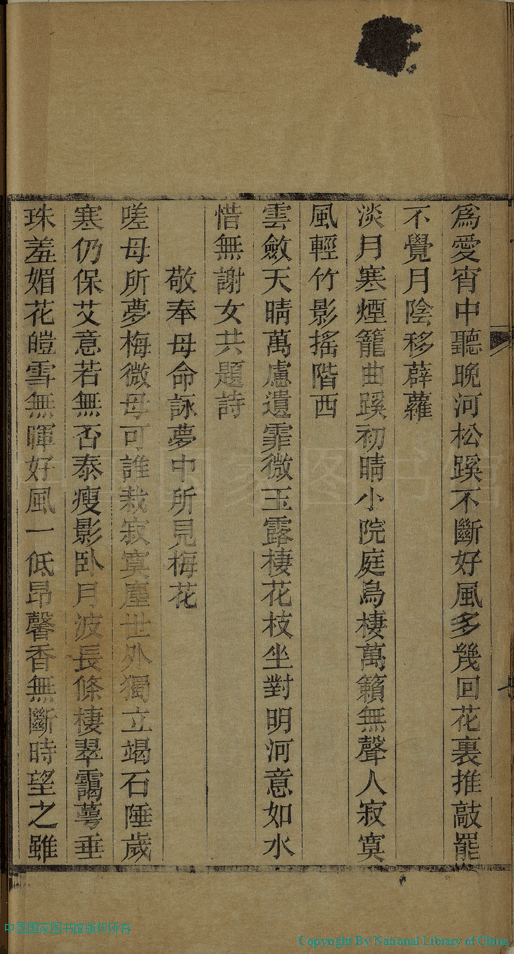 為愛宵中聽晚河松蹊不斷好風多幾回花裏推敲罷
不覺月陰移薜蘿
淡月寒煙籠曲蹊初晴小院庭鳥棲萬籟無聲人寂寞
風輕竹影搖階西
雲斂天晴萬慮遺霏微玉露棲花枝坐對明河意如水
惜無謝女共題詩
敬奉母命詠夢中所見梅花
嗟母所夢梅微母可誰栽寂寞塵世外獨立竭石陲歲
寒仍保艾意若無否泰瘦影臥月波長條棲翠靄萼垂
珠羞媚花皚雪無暉好風一低昂馨香無斷時望之雖
中国国家图书馆
Copyright By National Library of China